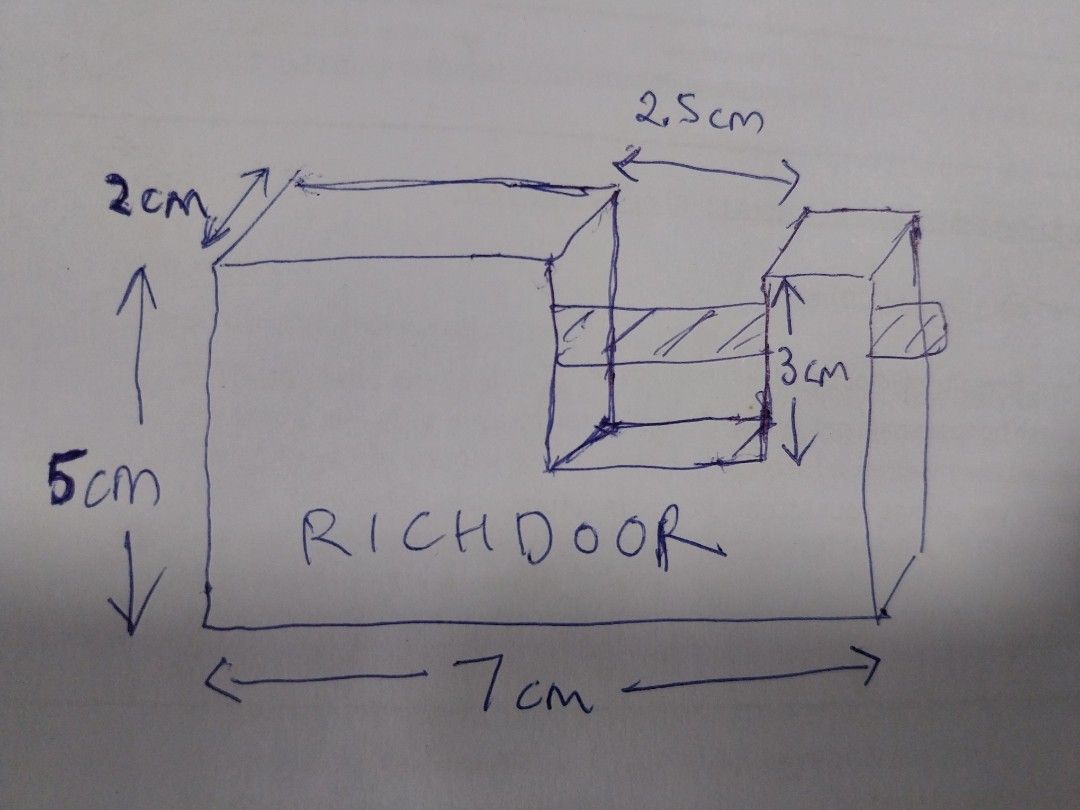 2.5cm
2cm
3cm
5cm
RICHDOOR
7cm